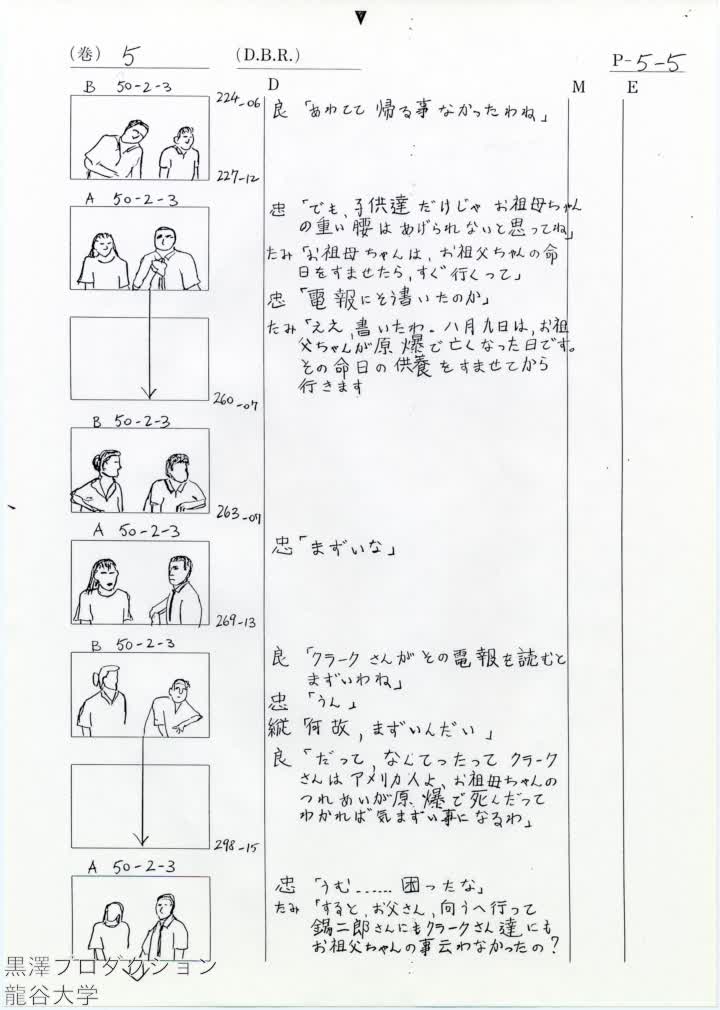 (巻) 5 (D.B.R.) P-5-5
D M E
B 50-2-3
224-06
良「あわてて帰る事なかったわね」
227-12
A 50-2-3
忠「でも、子供達だけじゃお祖母ちゃん
の重い腰はあげられないと思ってね」
たみ「お祖母ちゃんは、お祖父ちゃんの命
日をすませたら、すぐ行くって」
忠「電報にそう書いたのか」
たみ「ええ、書いたわ。八月九日は、お祖
父ちゃんが原爆で亡くなった日です。
その命日の供養をすませてから
行きます
260-07
B 50-2-3
263-07
A 50-2-3
忠「まずいな」
269-13
B 50-2-3
良「クラークさんがその電報を読むと
まずいわね」
忠「うん」
縦「何故、まずいんだい」
良「だって、なんてったってクラーク
さんはアメリカ人よ、お祖母ちゃんの
つれあいが原爆で死んだって
わかれば気まずい事になるわ」
298-15
A 50-2-3
忠「うむ……困ったな」
たみ「すると、お父さん、向うへ行って
錫二郎さんにもクラークさん達にも
お祖父ちゃんの事云わなかったの?
黒澤プロダクション
龍谷大学